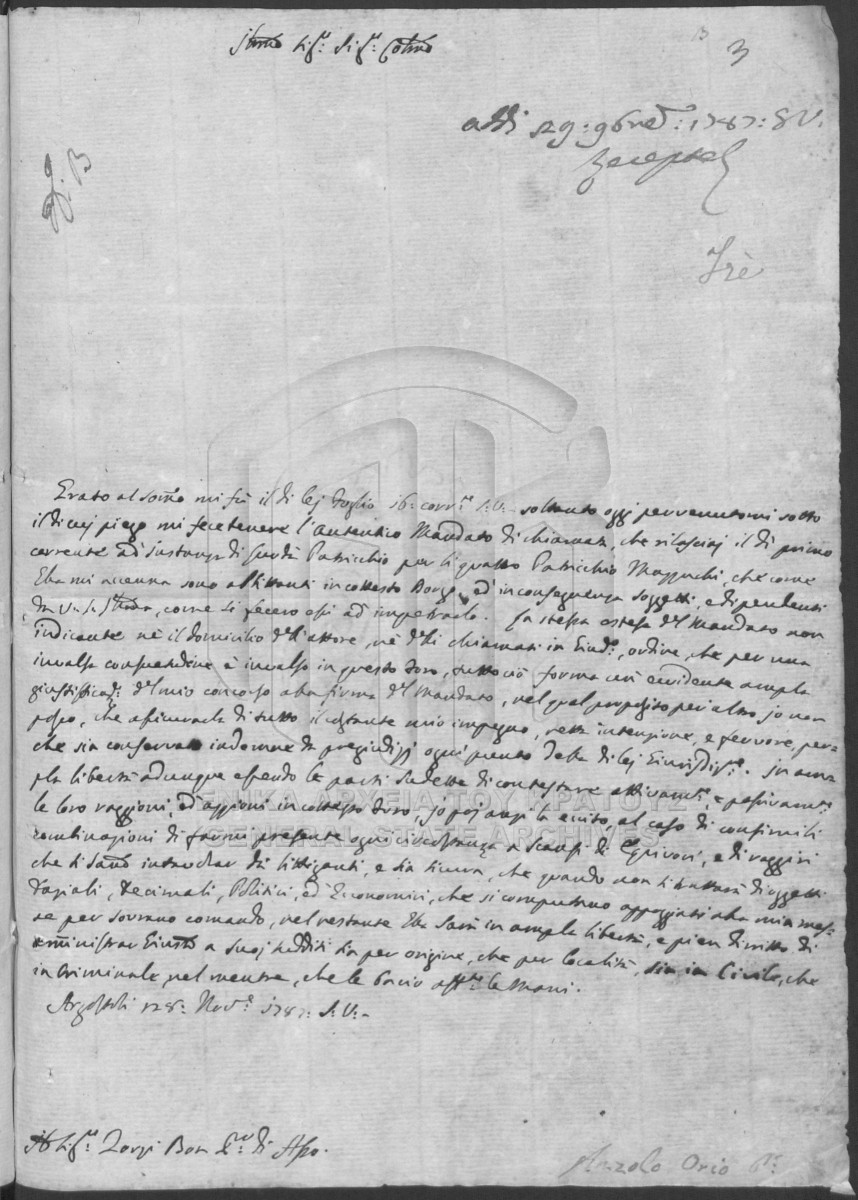 3
addì 29: 9bre: 1787: S.V.
B
Trè
Grato al sommo mi fù il di lej foglio 16: corr.te S.V. soltanto oggi pervenutomi sotto
il di cuj piego mi fece tenere l'autentico Mandato di chiamata, che rilasciaj il dì primo
corrente ad instanza di Patricchio per li quattro Patricchio che come
Ella mi accenna sono abittanti in cottesto Borgo, ed in conseguenza soggetti, e dipendenti
da V.S. come si fecero essi ad impetrarlo. La stessa estesa del Mandato non
indicante nè il domicilio dell'attore, nè delli chiamati in Giud.o, ordine, che per una
invalsa consuetudine è invalso in questo Foro, tutto ciò forma un evidente ampla
giustificaz.e del mio concorso alla firma del Mandato, nel qual proposito per altro jo non
posso, che assicurarla di tutto il costante mio impegno, retta intenzione, e fervore, per
che sia conservato indenne da pregiudizj ogni punto della di lej Giurisdiz.e. In am
pla libertà adunque essendo le parti sudette di contestare attivam.te, e passivam.te
le loro raggioni, ed azzioni in cottesto Foro, jo poj anzi la eccito al caso di consimili
combinazioni di farmi presente ogni circostanza a scanso di equivoci, e di raggiri
che si introdur da littiganti, e sia sicura, che quando non si trattarà di oggetti
Daziali, Decimali, Politici, ed Economici, che si compettono appoggiati alla mia
per sovrano comando, nel restante Ella sarà in ampla libertà, e pien diritto di
amministrar Giust.a a suoj sudditi sia per origine, che per località, sia in Civile, che
in Criminale, nel mentre, che le bacio aff.te le Mani.
Argostoli 28: Nov.e 1787: S.V.
Zorzi Bon di Asso.
Anzolo Orio
ΓΕΝΙΚΑ ΑΡΧΕΙΑ ΤΟΥ ΚΡΑΤΟΥΣ
GENERAL STATE ARCHIVES